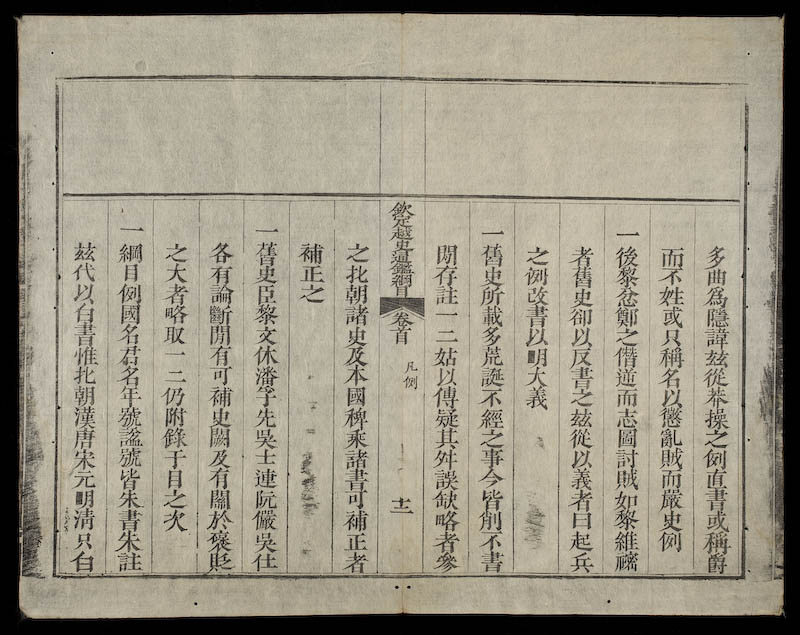 多曲爲隱諱玆從莽操之例直書或稱爵
而不姓或只稱名以懲亂賊而嚴史例
一後黎忿鄭之僭逆而志圖討賊如黎維𥛉
者舊史卻以反書之玆從以義者曰起兵
之例改書以明大義
一舊史所載多荒誕不經之事今皆削不書
間存註一二姑以傳疑其舛誤缺略者參
欽定越史通鑑綱目 卷首 凡例 十二
之北朝諸史及本國稗乘諸書可補正者
補正之
一舊史臣黎文休潘孚先吳士連阮儼吳仕
各有論斷間有可補史闕及有關於褒貶
之大者略取一二仍附錄于目之次
一綱目例國名君名年號諡號皆朱書朱註
玆代以白書惟北朝漢唐宋元明清只白